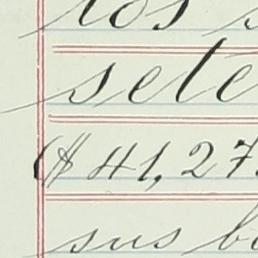 los s
sete
($41,27
sus b